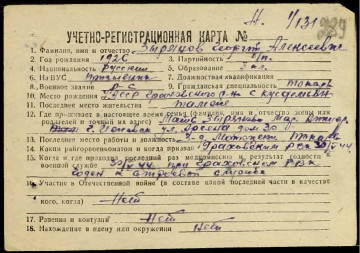 Н. 1/131
239
УЧЕТНО-РЕГИСТРАЦИОННАЯ КАРТА №
1. Фамилия, имя и отчество Зырянов Георгий Алексеевич
2. Год рождения 1926 3. Партийность б/п.
4. Национальность Русский 5. Образование 3 кл.
6. № ВУС Призывник 7. Должностная квалификация
8. Военное звание Р-С 9. Гражданская специальность Токарь
10. Место рождения Граховского р-на С
Последнее место жительства там же
12. Где проживает в настоящее время семья (фамилия, имя отчества жены или родителей и точный их адрес) Мать
г. Ижевск ул. дом 30
13. Последнее место работы и должность Токарь
14. Каким райвоенкоматом и когда призван Граховским РВК
15. Когда и где проходил последний раз медкомиссию и результат годности к военной службе при Граховском РВК
годен к строевой службе
16. Участие в Отечественной войне (в составе какой последней части в качестве кого, когда) Нет
17. Ранения и контузии Нет
18. Нахождение в плену или окружении Нет